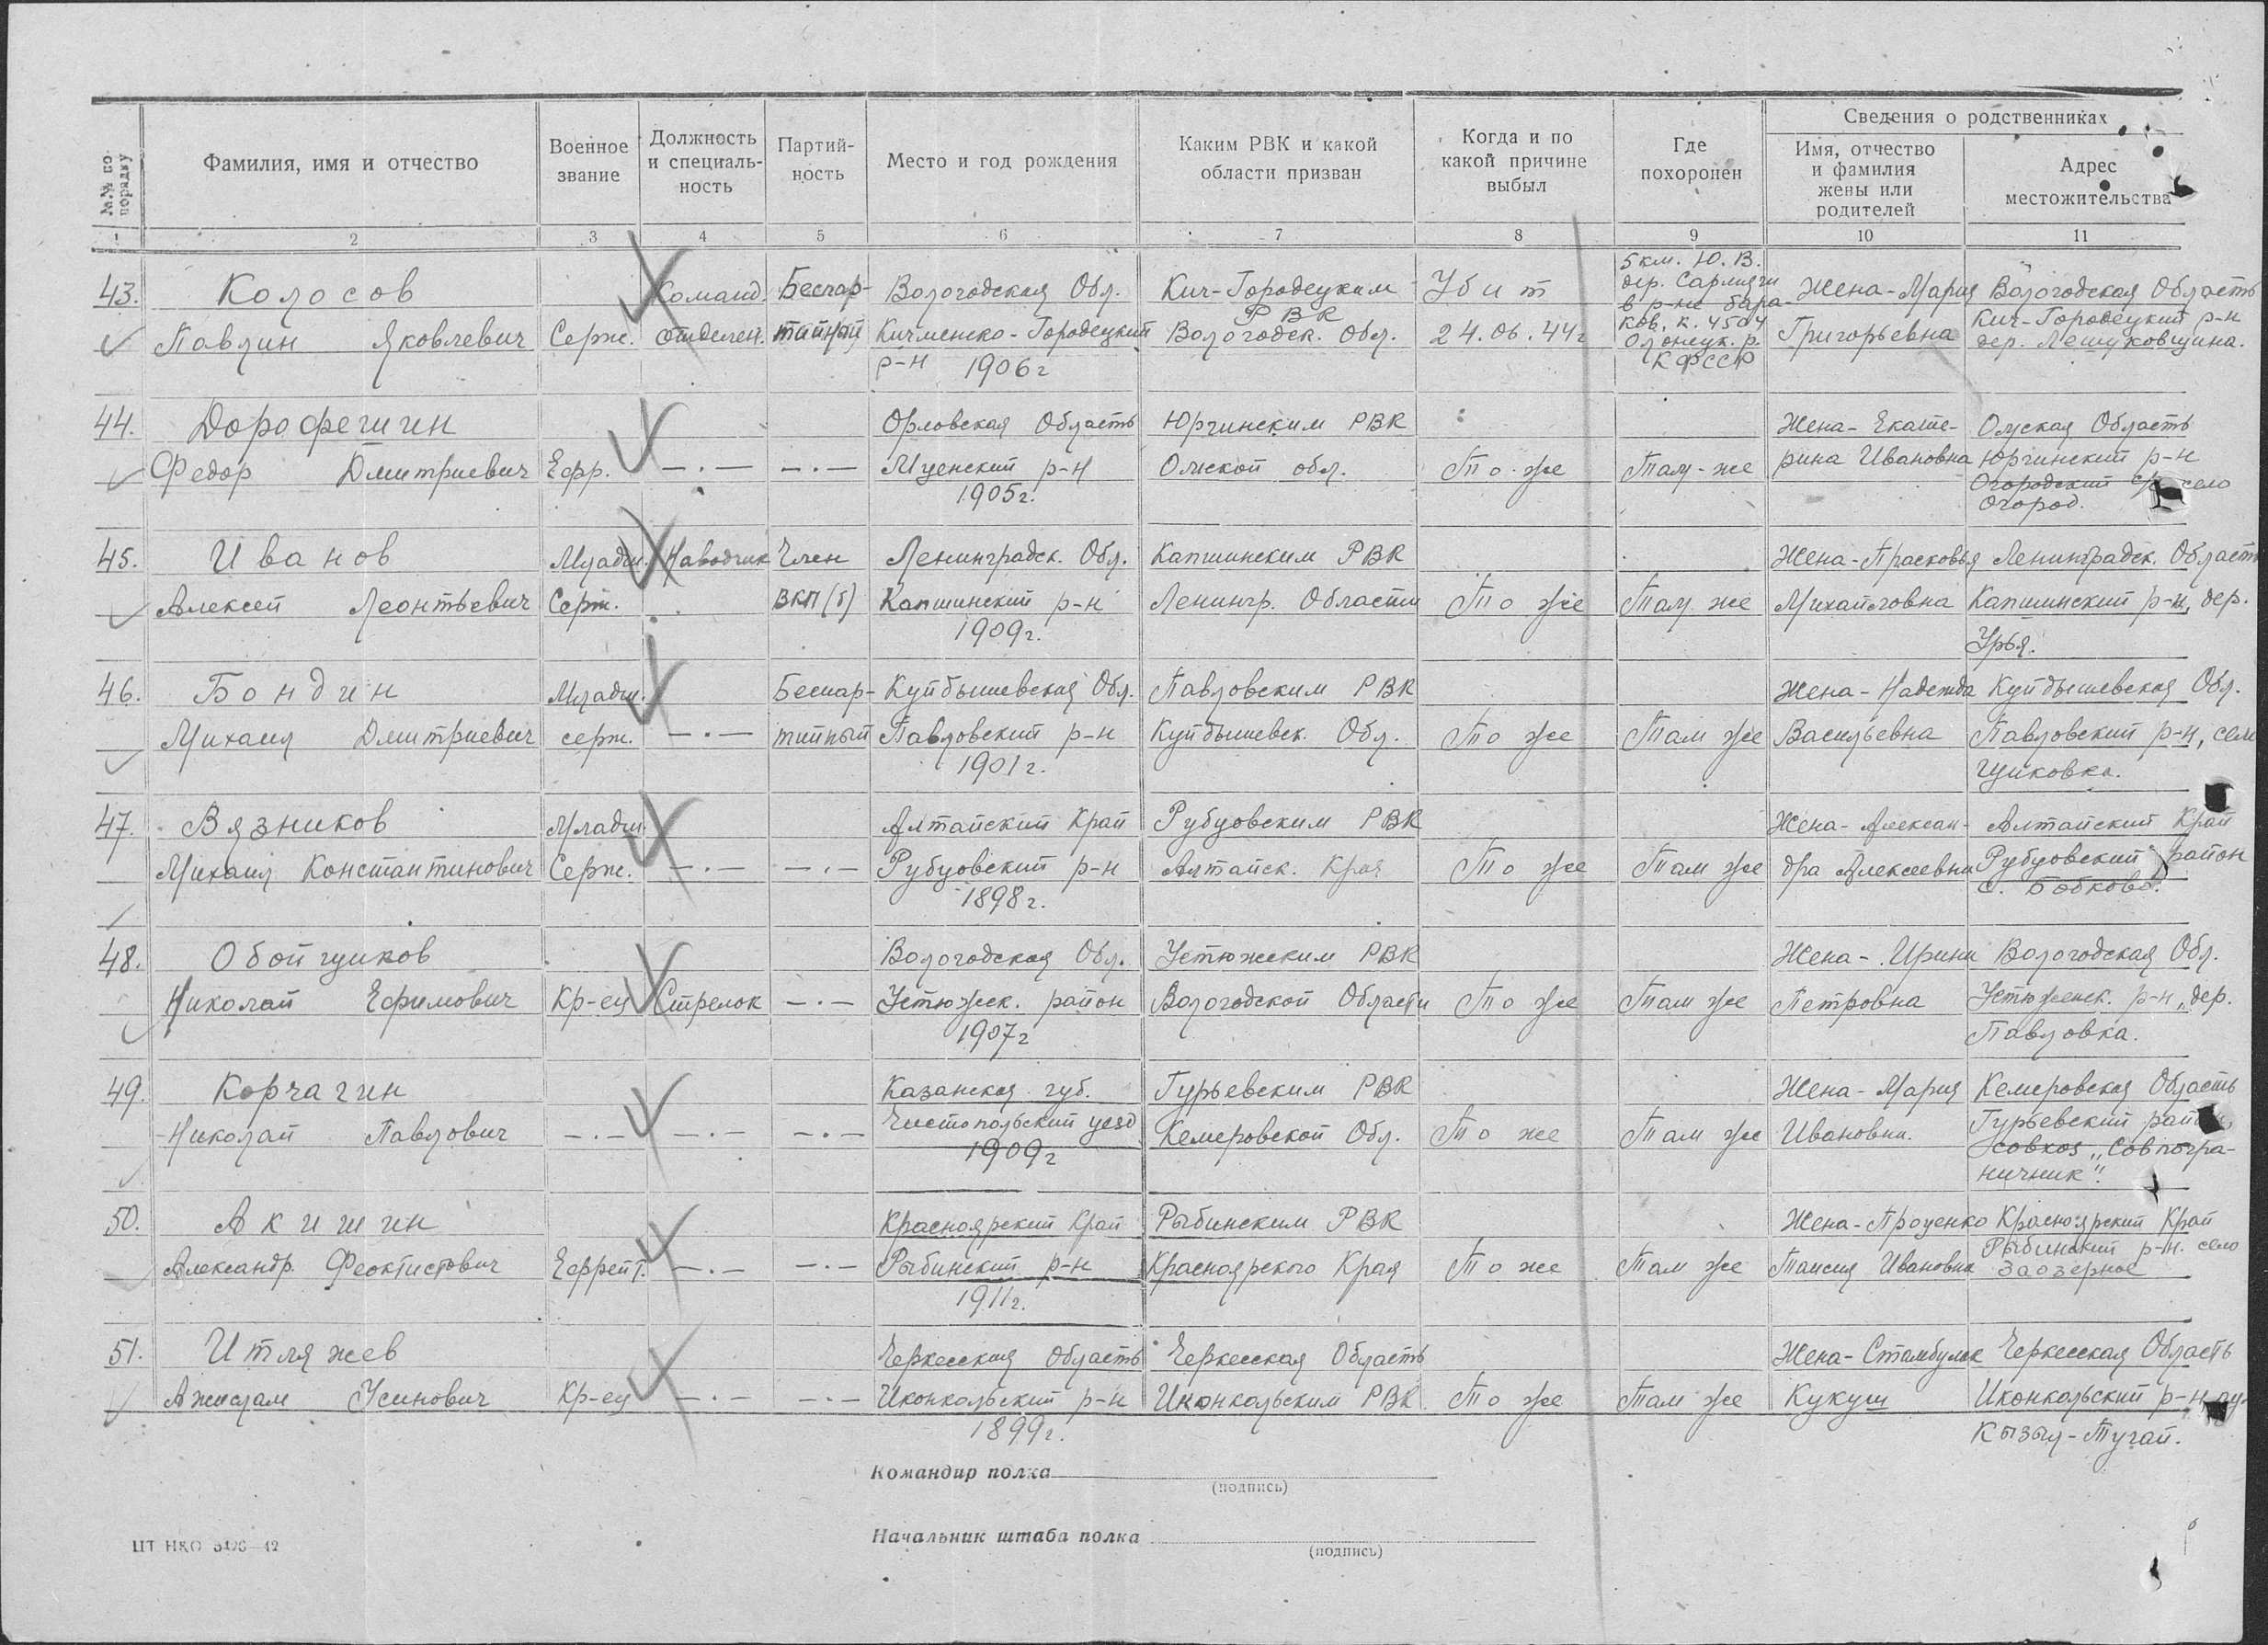 №№ по порядку
Фамилия, имя и отчество
Военное звание
Должность и специаль-ность
Партий-ность
Место и год рождения
Каким РВК и какой области призван
Когда и по какой причине выбыл
Где похоронен
Сведения о родственниках
Имя, отчество и фамилия жены или родителей
Адрес местожительства
1 2 3 4 5 6 7 8 9 10 11
43. Колосов Команд. Беспар- Вологодская Обл. Кич-Городецким Убит 5 км. Ю.В. дер. Сармяги Жена-Мария Вологодская Область
Павлин Яковлевич Серж. отделен. тийный Кичменско-Городецкий РВК Вологодск. Обл. 24.06.44г в р-не бара- ков, к. 4504 Григорьевна Кич-Городецкий р-н
р-н 1906г Олонецк. р. КФССР дер. Лешуковщина.
44. Дорофешин Орловская Область Юргинским РВК Жена-Екате- Омская Область
Федор Дмитриевич Ефр. —·— —·— Мценский р-н Омской обл. То-же Там-же рина Ивановна Юргинский р-н
1905г. Огородский с/с село
Огород.
45. Иванов Младш. Наводчик Член Ленинградск. Обл. Капшинским РВК Жена-Прасковья Ленинградск. Область
Алексей Леонтьевич Серж. ВКП(б) Капшинский р-н Ленингр. Области То же Там же Михайловна Капшинский р-н, дер.
1909г. Урья.
46. Бондин Младш. Беспар- Куйбышевская Обл. Павловским РВК Жена-Надежда Куйбышевская Обл.
Михаил Дмитриевич серж. —·— тийный Павловский р-н Куйбышевск. Обл. То же Там же Васильевна Павловский р-н, село
1901г.
47. Вязников Младш. Алтайский Край Рубцовским РВК Жена-Алексан- Алтайский Край
Михаил Константинович Серж. —·— —·— Рубцовский р-н Алтайск. Края То же Там же дра Алексеевна Рубцовский район
1898г. с. Бобково.
48. Обойщиков Вологодская Обл. Устюжским РВК Жена-Ирина Вологодская Обл.
Николай Ефимович Кр-ец Стрелок —·— Устюжск. район Вологодской Области То же Там же Петровна Устюженск. р-н, дер.
1907г Павловка.
49. Корчагин Казанская губ. Гурьевским РВК Жена-Мария Кемеровская Область
Николай Павлович —·— —·— —·— Чистопольский уезд Кемеровской Обл. То же Там же Ивановна. Гурьевский район,
1909г совхоз „Совпогра-
ничник".
50. Акишин Красноярский Край Рыбинским РВК Жена-Проценко Красноярский Край
Александр Феоктистович Ефрейт. —·— —·— Рыбинский р-н Красноярского Края То же Там же Таисия Ивановна Рыбинский р-н. село
1911г. Заозерное
51. Итляжев Черкесская Область Черкесская Область Жена-Стамбулак Черкесская Область
Ажислам Усинович Кр-ец —·— —·— Икон-хольский р-н Икон-хольским РВК То же Там же Кукуш Икон-хольский р-н
1899г. Кызыл-Тугай.
Командир полка
(подпись)
Начальник штаба полка
(подпись)